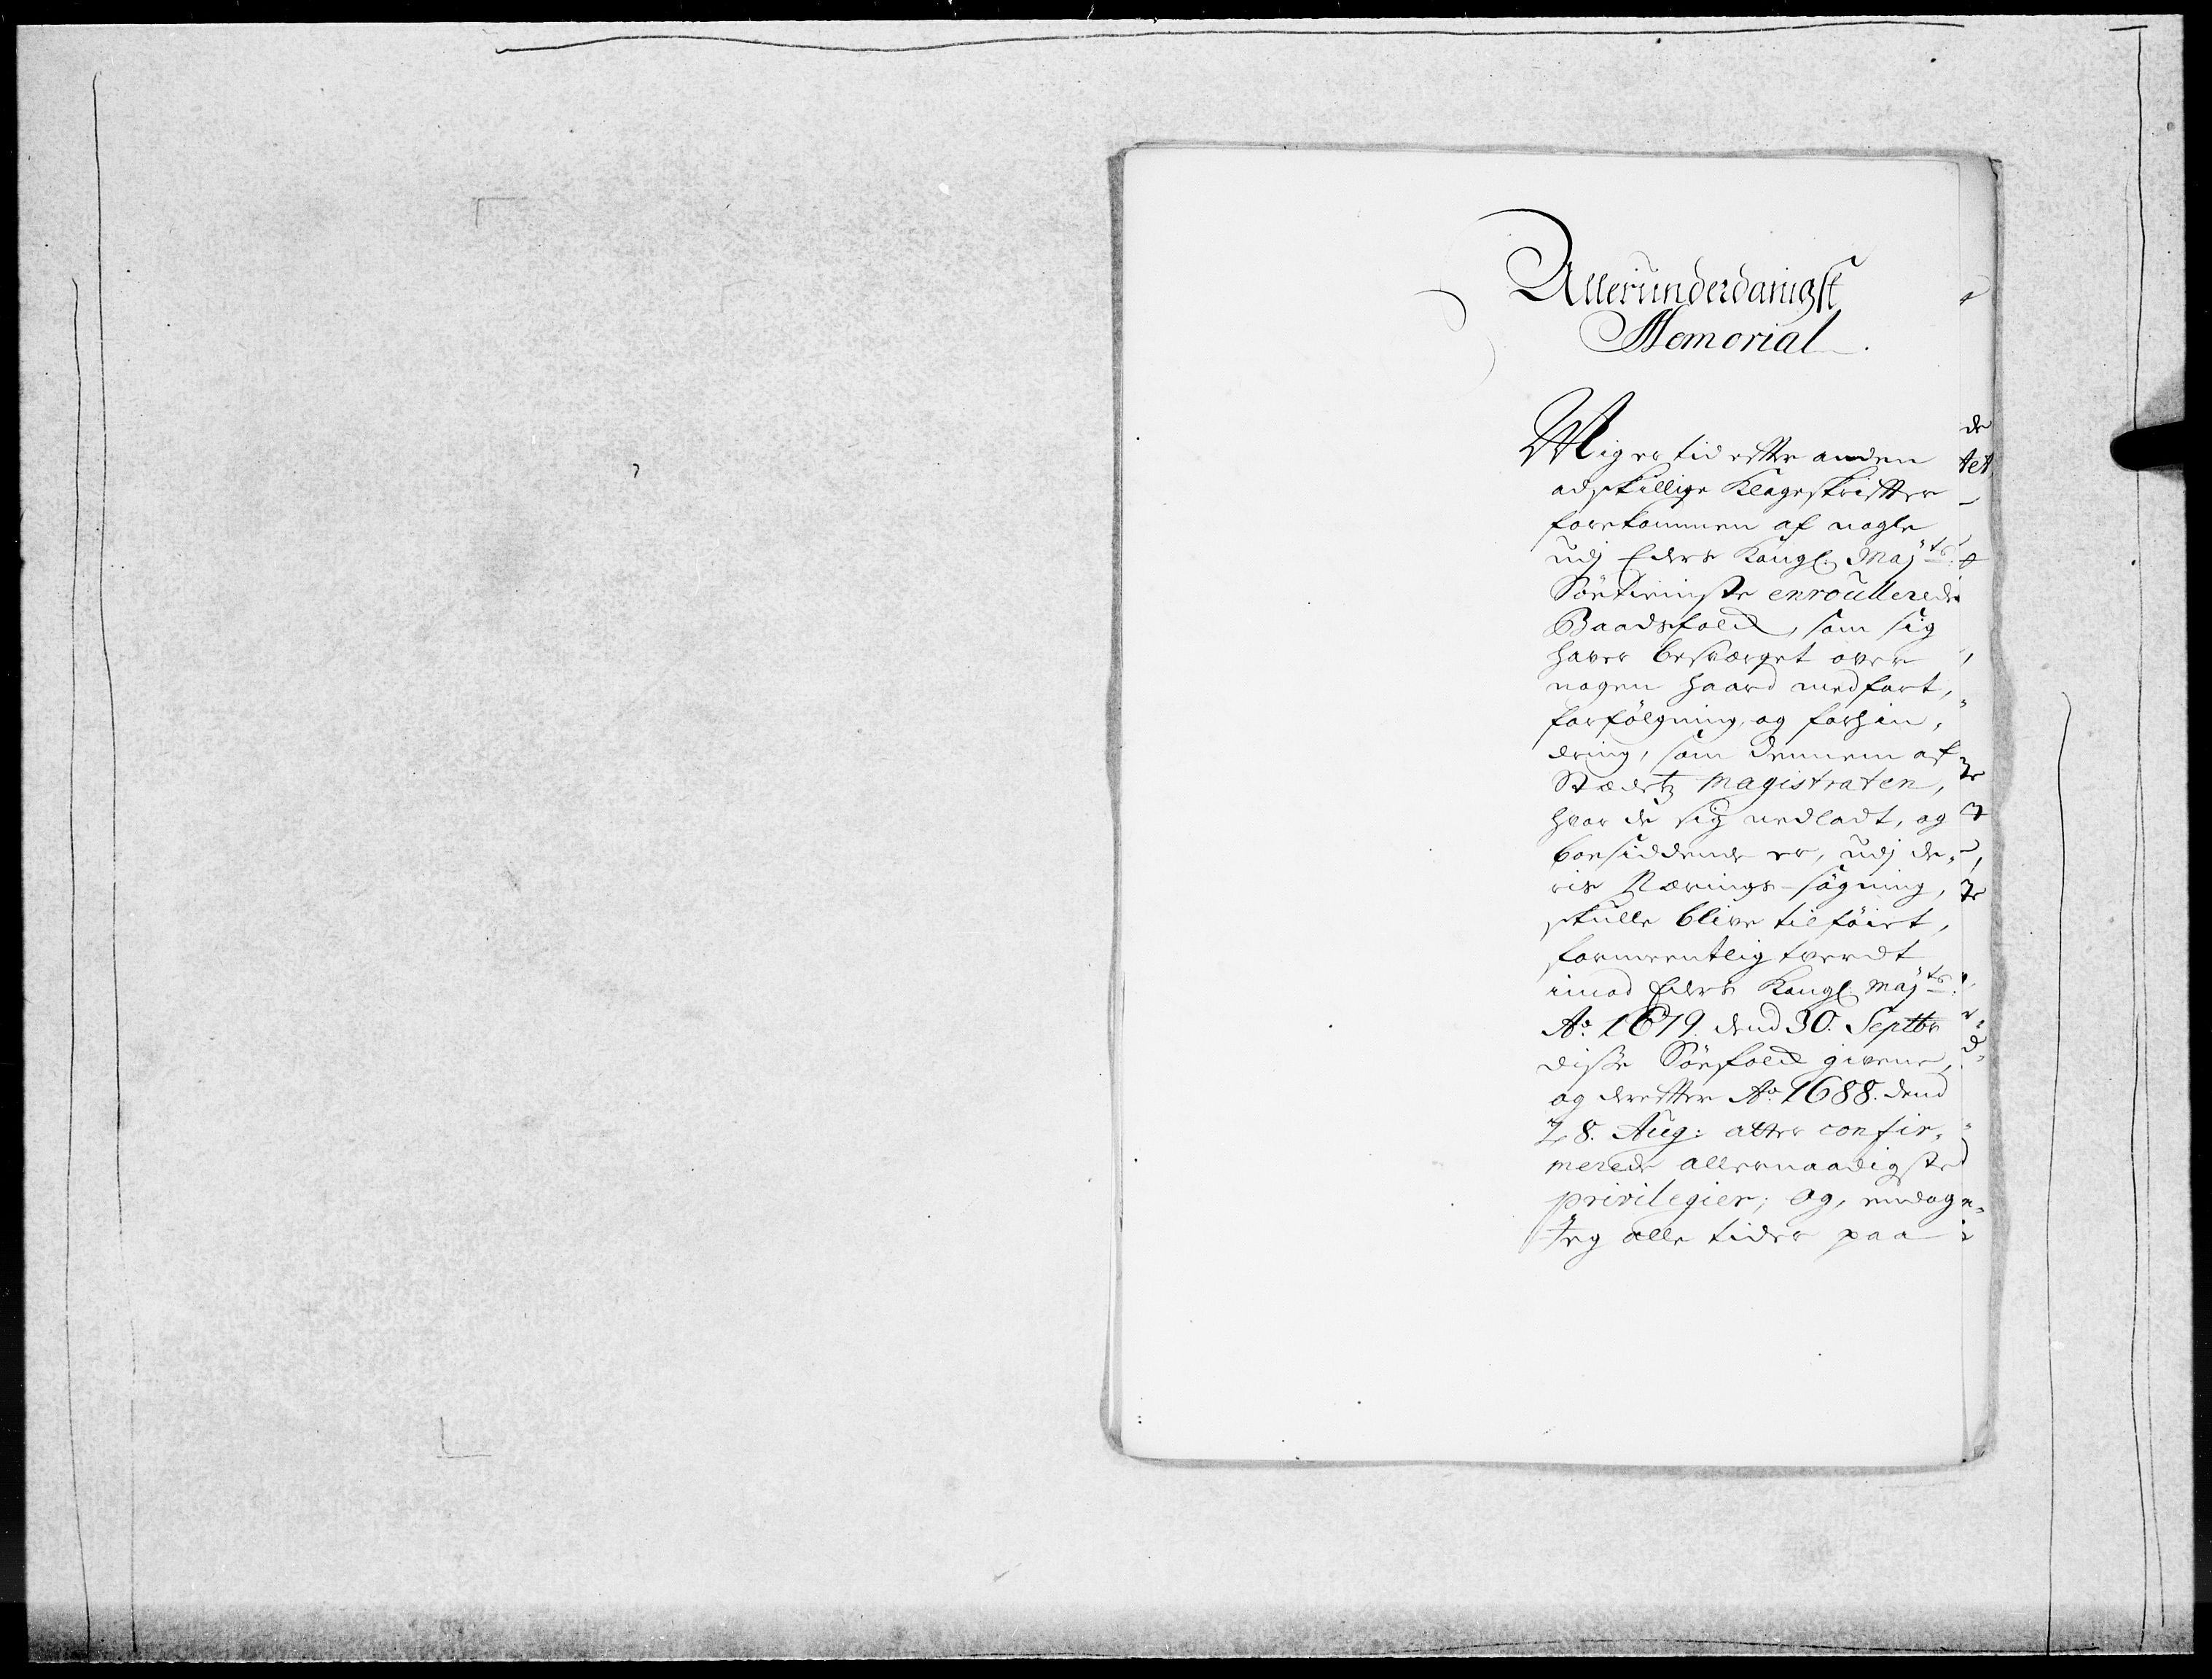 Allerunderdanigst
Memorial.
Mig er tid effter anden
adskillige Klageskriffter
forekommen af nogle
udj Eders Kongl. Majts:
Söetieniste enroullerede
Baadsfolck, som sig
haver besværget over
nogen haard medfart,
forfölgning, og forhin,
dring, som dennem af
Stædetz Magistraten,
hvor de sig nedladt, og
boesiddende er, udj de,
ris Nærings-sögning,
skulle blive tilföiet,
formeentlig tvert
imod Eders Kongl. Majts:
Ao. 1679. dend 30. Septbr
disse Söefolck givene,
og dereffter Ao. 1688. dend
28. Aug: atter confir,
merede allernaadigsted
privilegier; Og, endog
Jeg alle tider paa